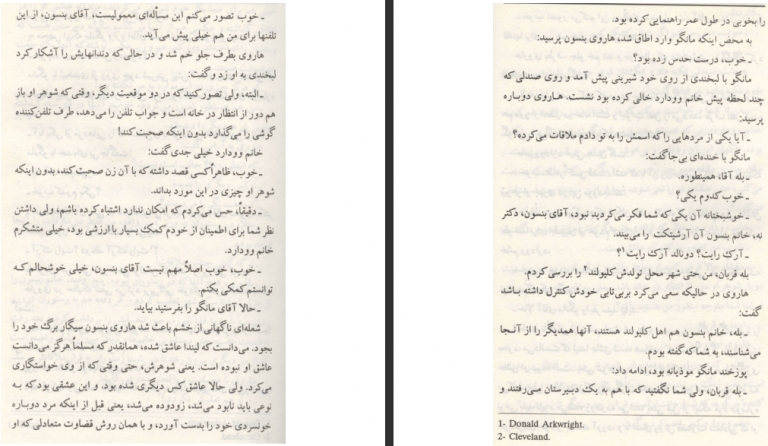 ـ خوب تصور می‌کنم این مسأله‌ای معمولیست، آقای بنسون، از این
تلفنها برای من هم خیلی پیش می‌آید.
هاروی بطرف جلو خم شد و در حالی که دندانهایش را آشکار کرد
لبخندی به او زد و گفت:
ـ البته، ولی تصور کنید که در دو موقعیت دیگر، وقتی که شوهر او باز
هم دور از انتظار در خانه است و جواب تلفن را می‌دهد، طرف تلفن‌کننده
گوشی را می‌گذارد بدون اینکه صحبت کند!
خانم وودارد خیلی جدی گفت:
ـ خوب، ظاهراً کسی قصد داشته که با آن زن صحبت کند، بدون اینکه
شوهر او چیزی در این مورد بداند.
ـ دقیقاً، حس می‌کردم که امکان ندارد اشتباه کرده باشم، ولی داشتن
نظر شما برای اطمینان از خودم کمک بسیار با ارزشی بود، خیلی متشکرم
خانم وودارد.
ـ خوب، خوب اصلاً مهم نیست آقای بنسون، خیلی خوشحالم که
توانستم کمکی بکنم.
ـ حالا آقای مانگو را بفرستید بیاید.
شعله‌ای ناگهانی از خشم باعث شد هاروی بنسون سیگار برگ خود را
بجود. می‌دانست که لیندا عاشق شده، همانقدر که مسلماً هرگز می‌دانست
عاشق او نبوده است. یعنی شوهرش، حتی وقتی که از وی خواستگاری
می‌کرد. ولی حالا عاشق کس دیگری شده بود. و این عشقی بود که به
نوعی باید نابود می‌شد، زدوده می‌شد، یعنی قبل از اینکه مرد دوباره
خونسردی خود را بدست آورد، و با همان روش قضاوت متعادلی که او
را بخوبی در طول عمر راهنمایی کرده بود.
به محض اینکه مانگو وارد اطاق شد، هاروی بنسون پرسید:
ـ خوب، درست حدس زده بود؟
مانگو با لبخندی از روی خود شیرینی پیش آمد و روی صندلی که
چند لحظه پیش خانم وودارد خالی کرده بود نشست. هـاروی دوبـاره
پرسید:
ـ آیا یکی از مردهایی را که اسمش را به تو دادم ملاقات می‌کرده؟
مانگو با خنده‌ای بی‌جا گفت:
ـ بله آقا، همینطوره.
ـ خوب کدوم یکی؟
ـ خوشبختانه آن یکی که شما فکر می‌کردید نبود، آقای بنسون، دکتر
نه، خانم بنسون آن آرشیتکت را می‌بیند.
ـ آرک رایت؟ دونالد آرک رایت۱؟
بله قربان، من حتی شهر محل تولدش کلیولند۲ را بررسی کردم.
هاروی در حالیکه سعی می‌کرد بر بی‌تابی خودش کنترل داشته بـاشد
گفت:
ـ بله، خانم بنسون هم اهل کلیولند هستند، آنها همدیگر را از آنـجا
می‌شناسند، به شما که گفته بودم.
پوزخند مانگو موذیانه بود، ادامه داد:
ـ بله قربان، ولی شما نگفتید که با هم به یک دبیرستان مـی‌رفتند و
1- Donald Arkwright.
2- Cleveland.